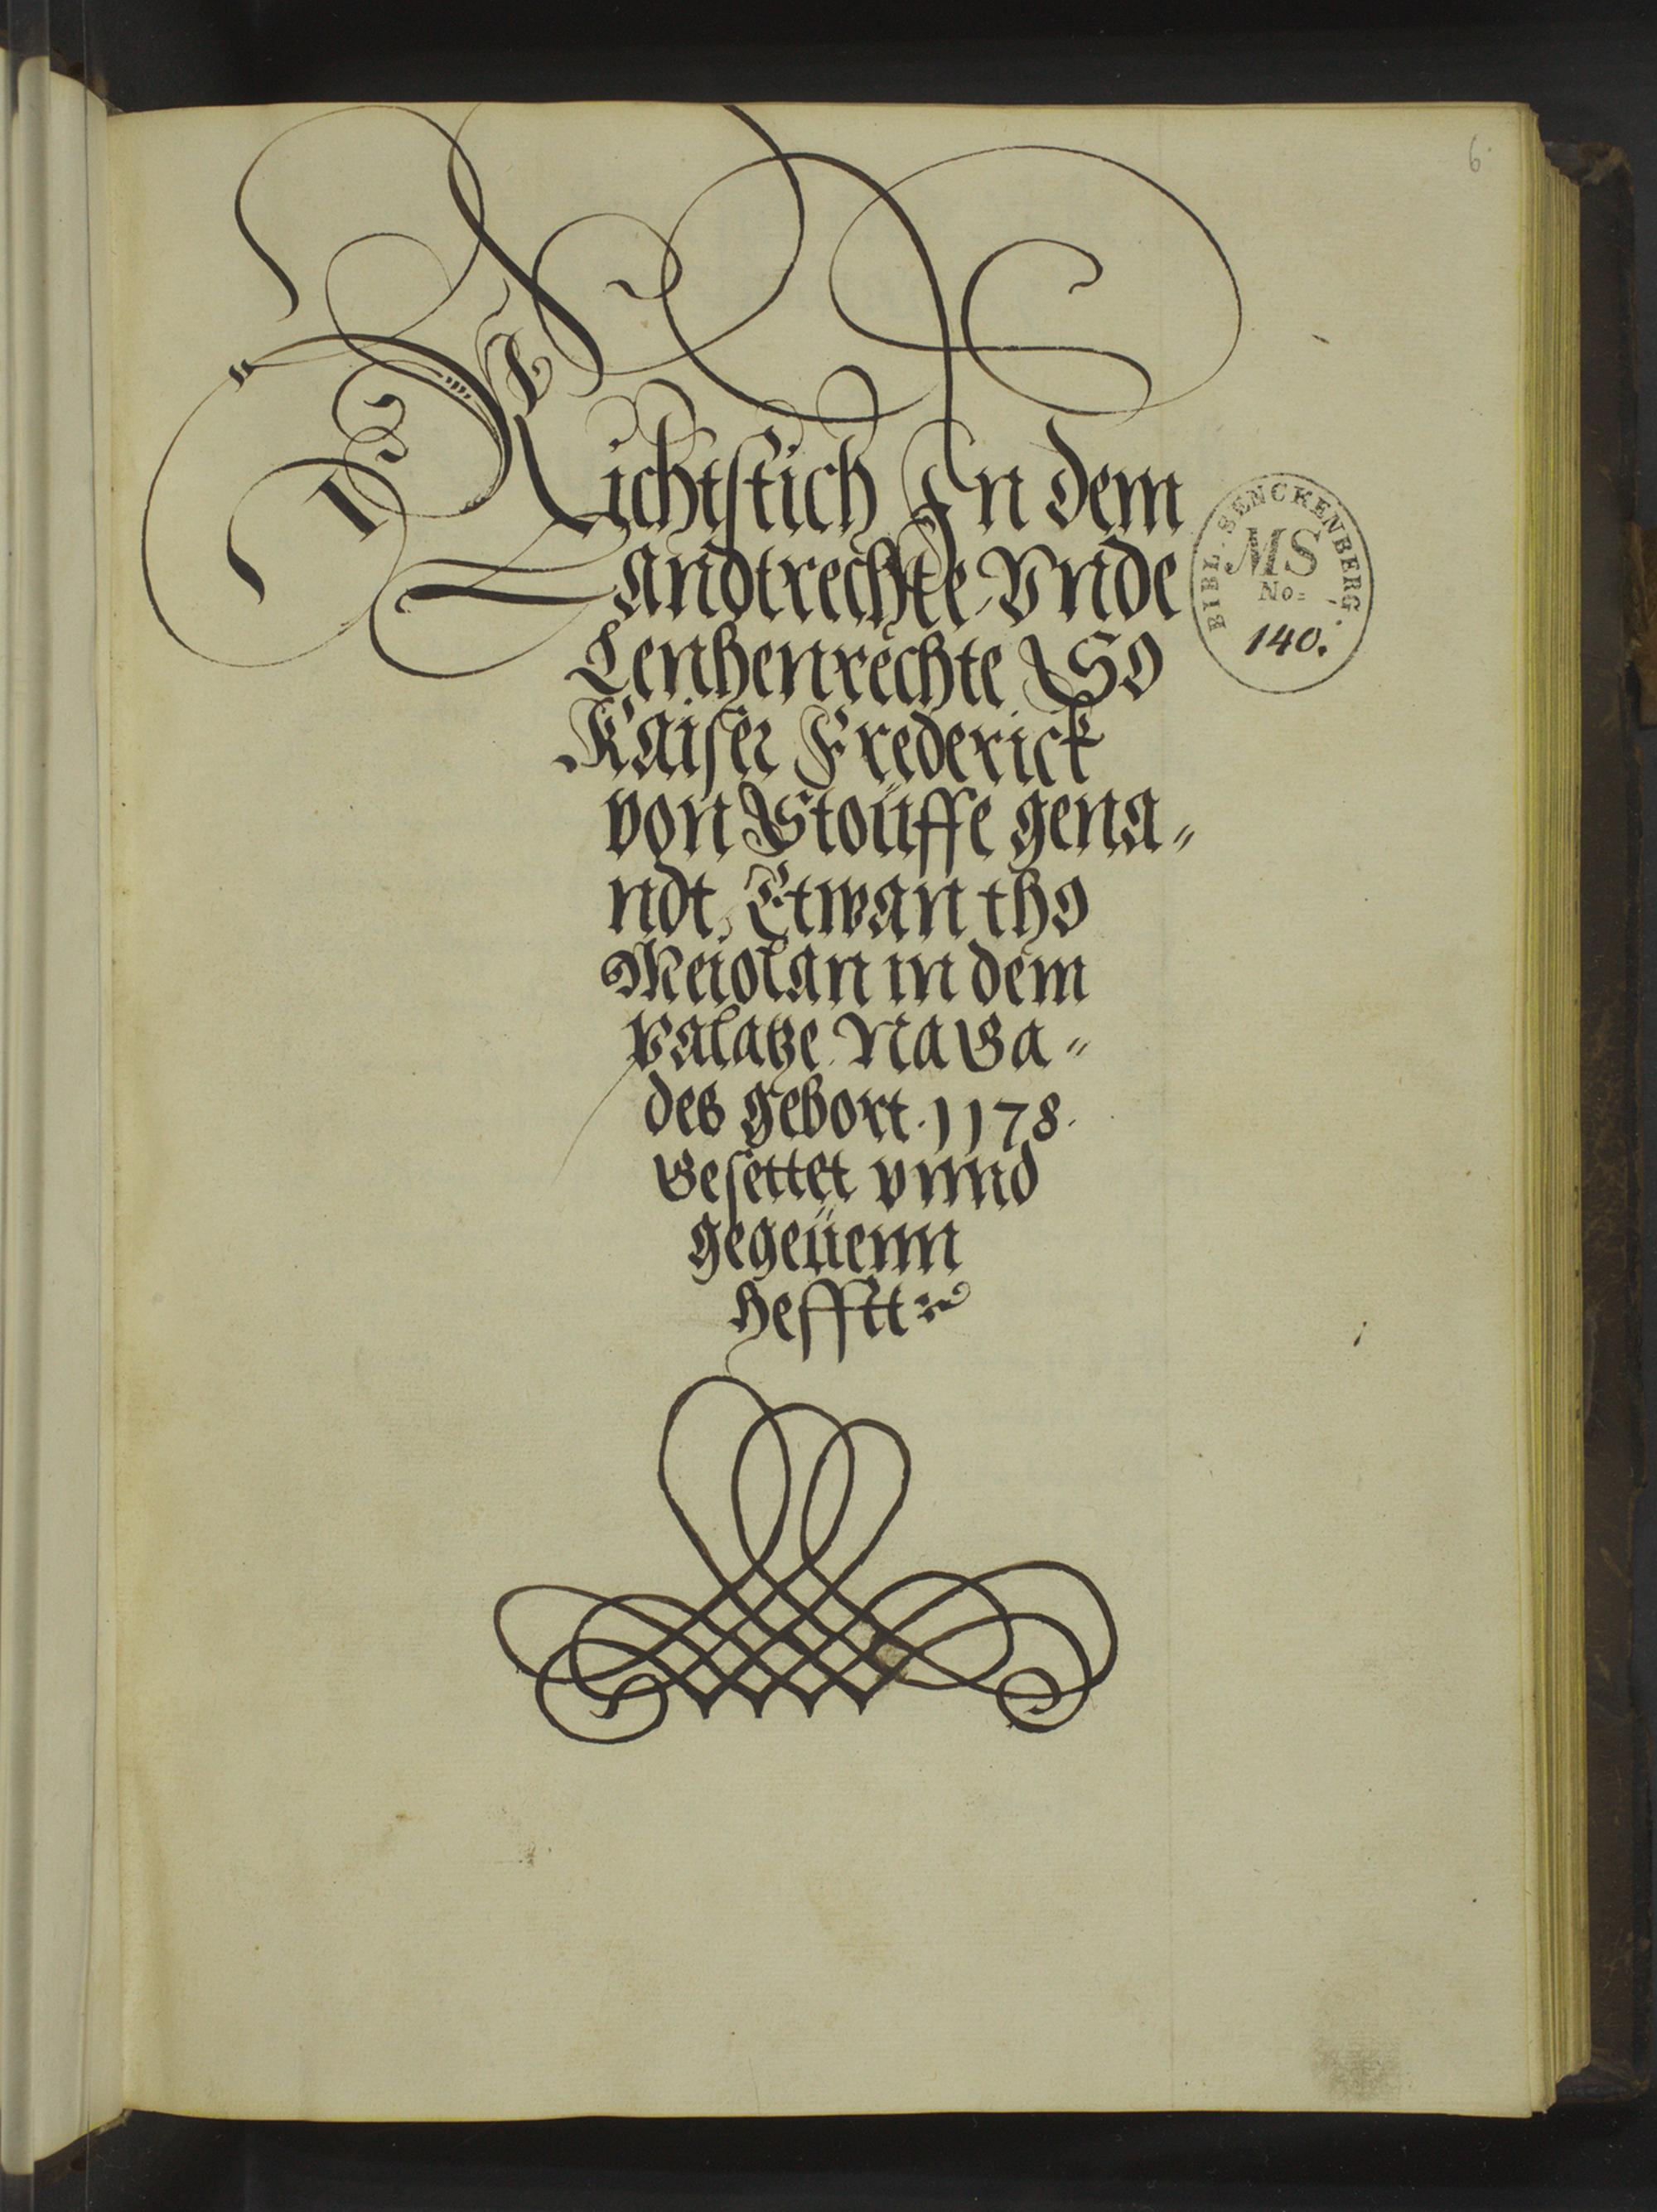 6
Richtstich In dem
Landtrechte Vnde
Lenhenrechte So
Kaiser Frederick
von Stouffe gena„
ndt, Etwan tho
Meiolan in dem
Palatze Na Ga„
des gebort. 1178.
Gesettet vnnd
gegeuenn
hefftt
BIBL. SENCKENBERG.
MS
No:
140.